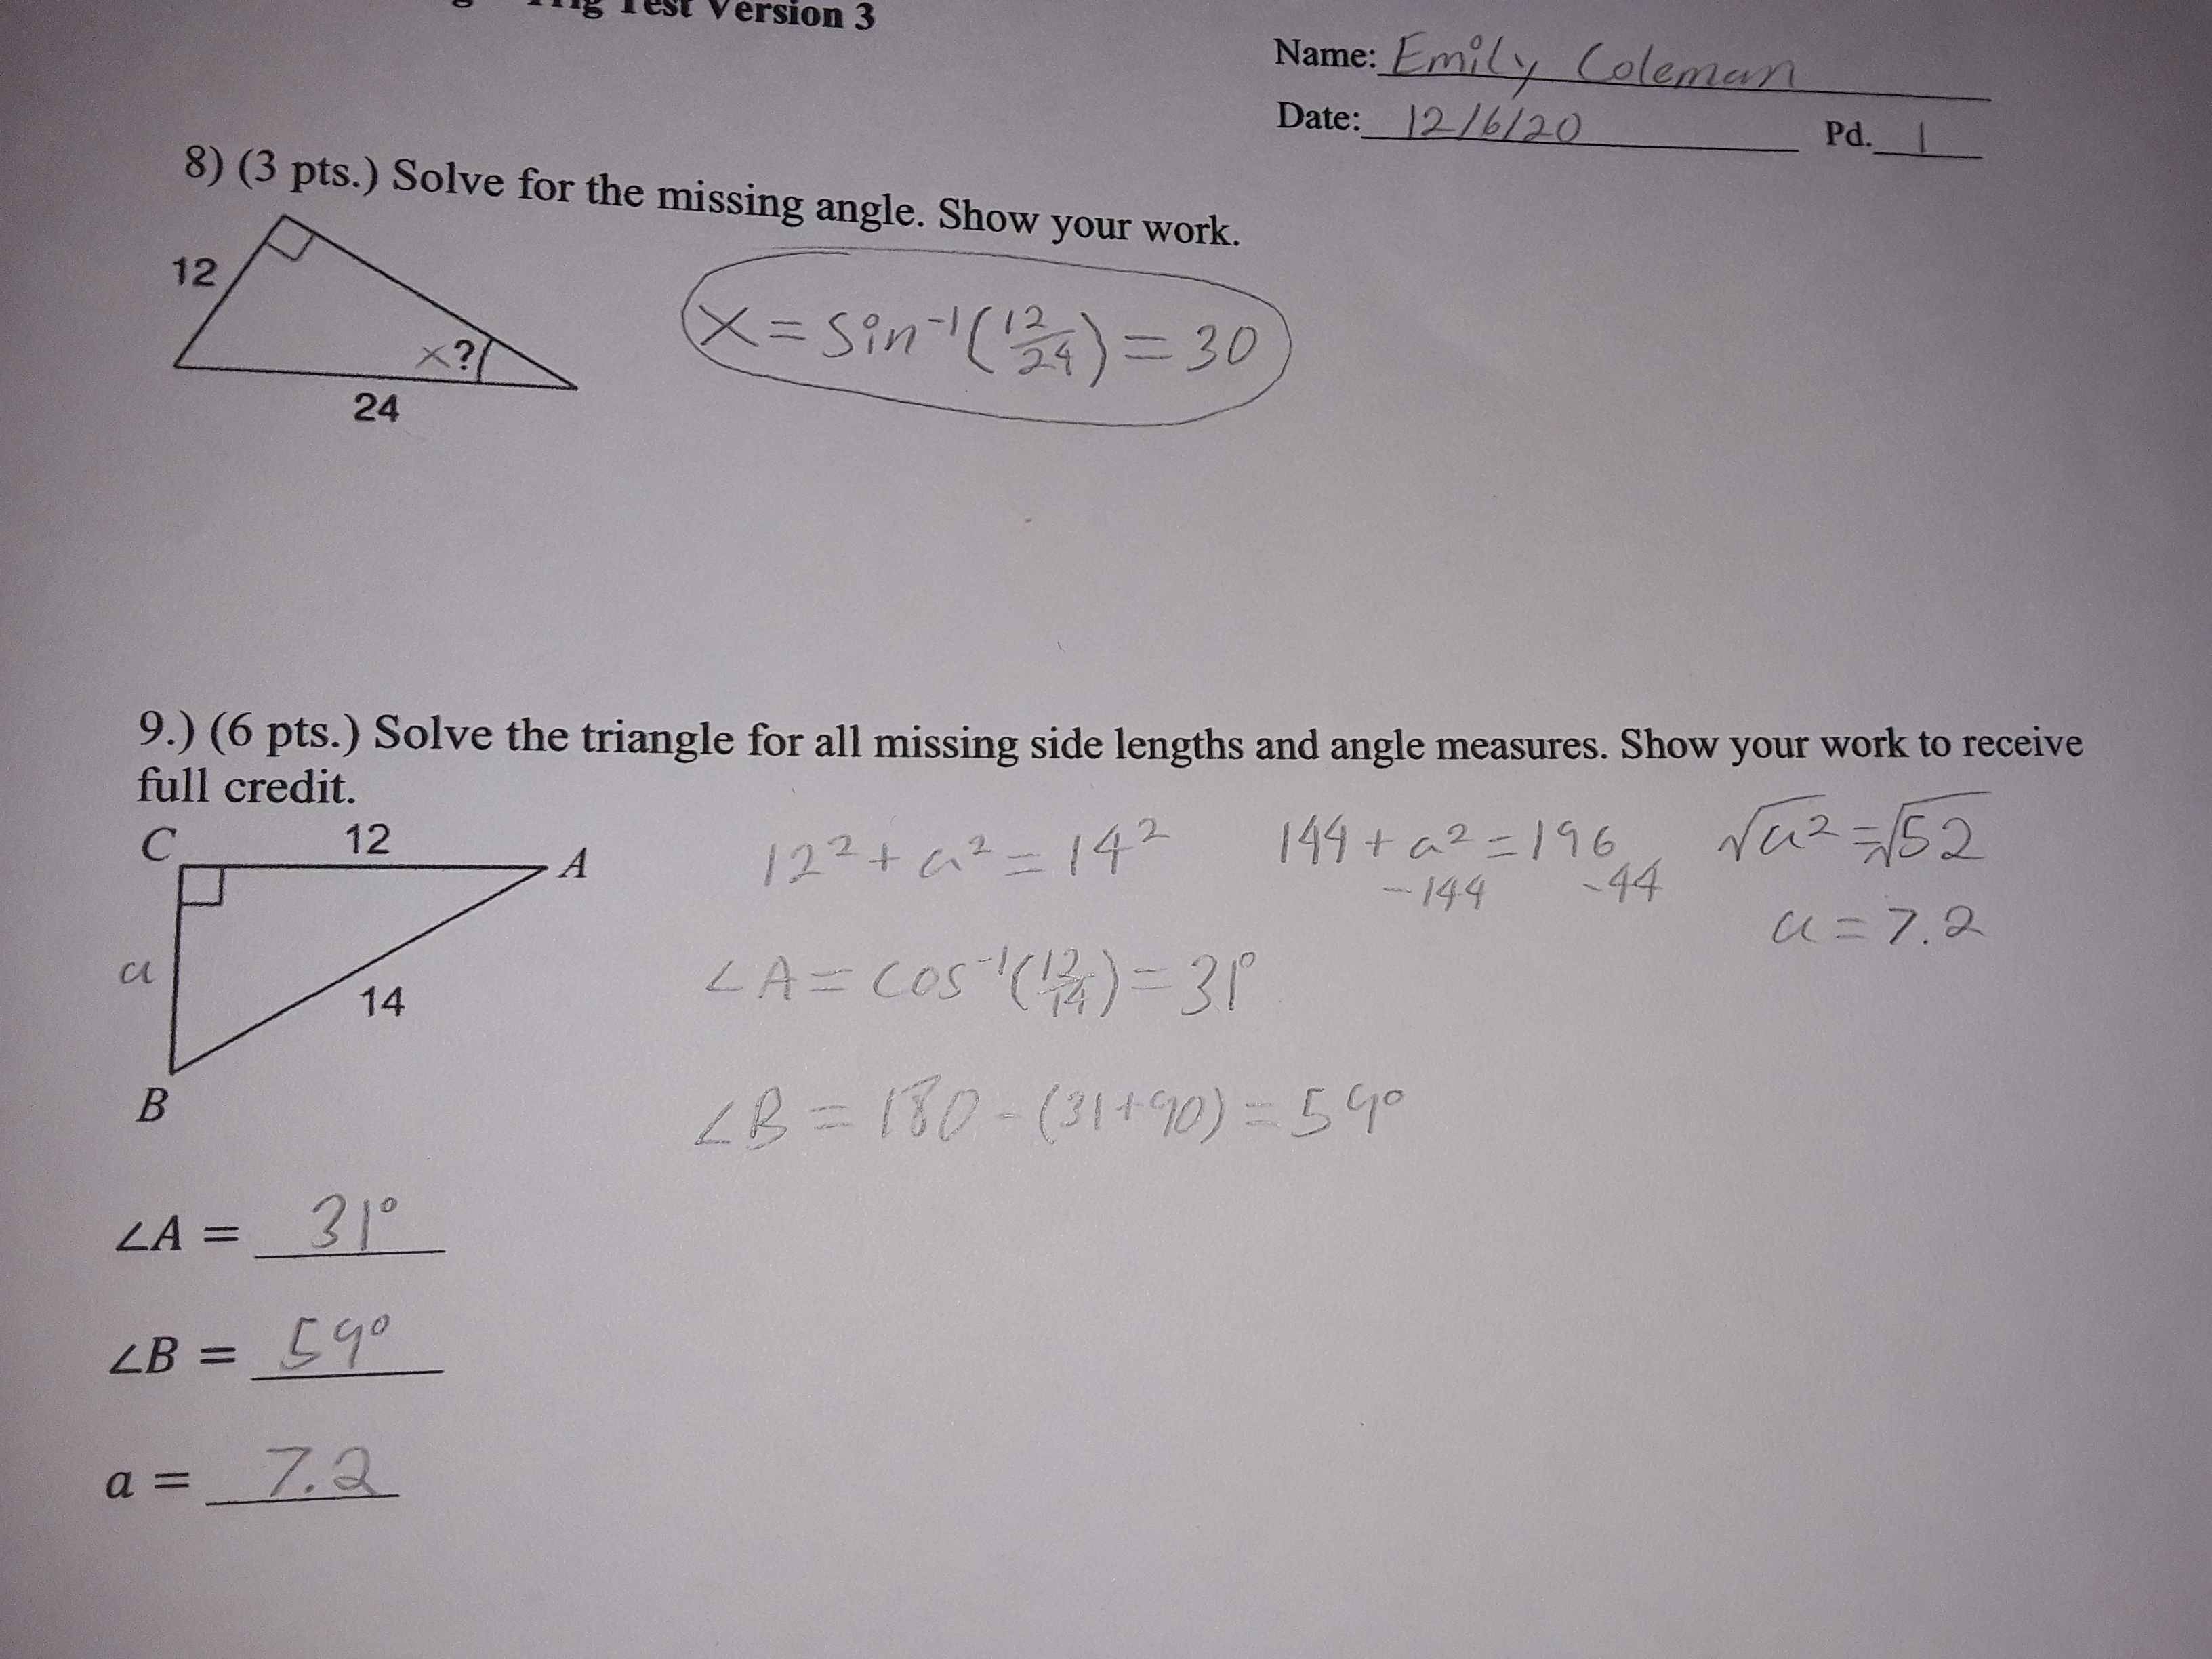 Test Version 3
Name: Emily Coleman
Date: 12/6/20 Pd. 1
8) (3 pts.) Solve for the missing angle. Show your work.
12
x?
24
x = sin⁻¹(12/24) = 30
9.) (6 pts.) Solve the triangle for all missing side lengths and angle measures. Show your work to receive
full credit.
C 12 A
a
14
B
12² + a² = 14²
144 + a² = 196
-144 -44
√a² = √52
a = 7.2
∠A = cos⁻¹(12/14) = 31°
∠B = 180 - (31+90) = 59°
∠A = 31°
∠B = 59°
a = 7.2